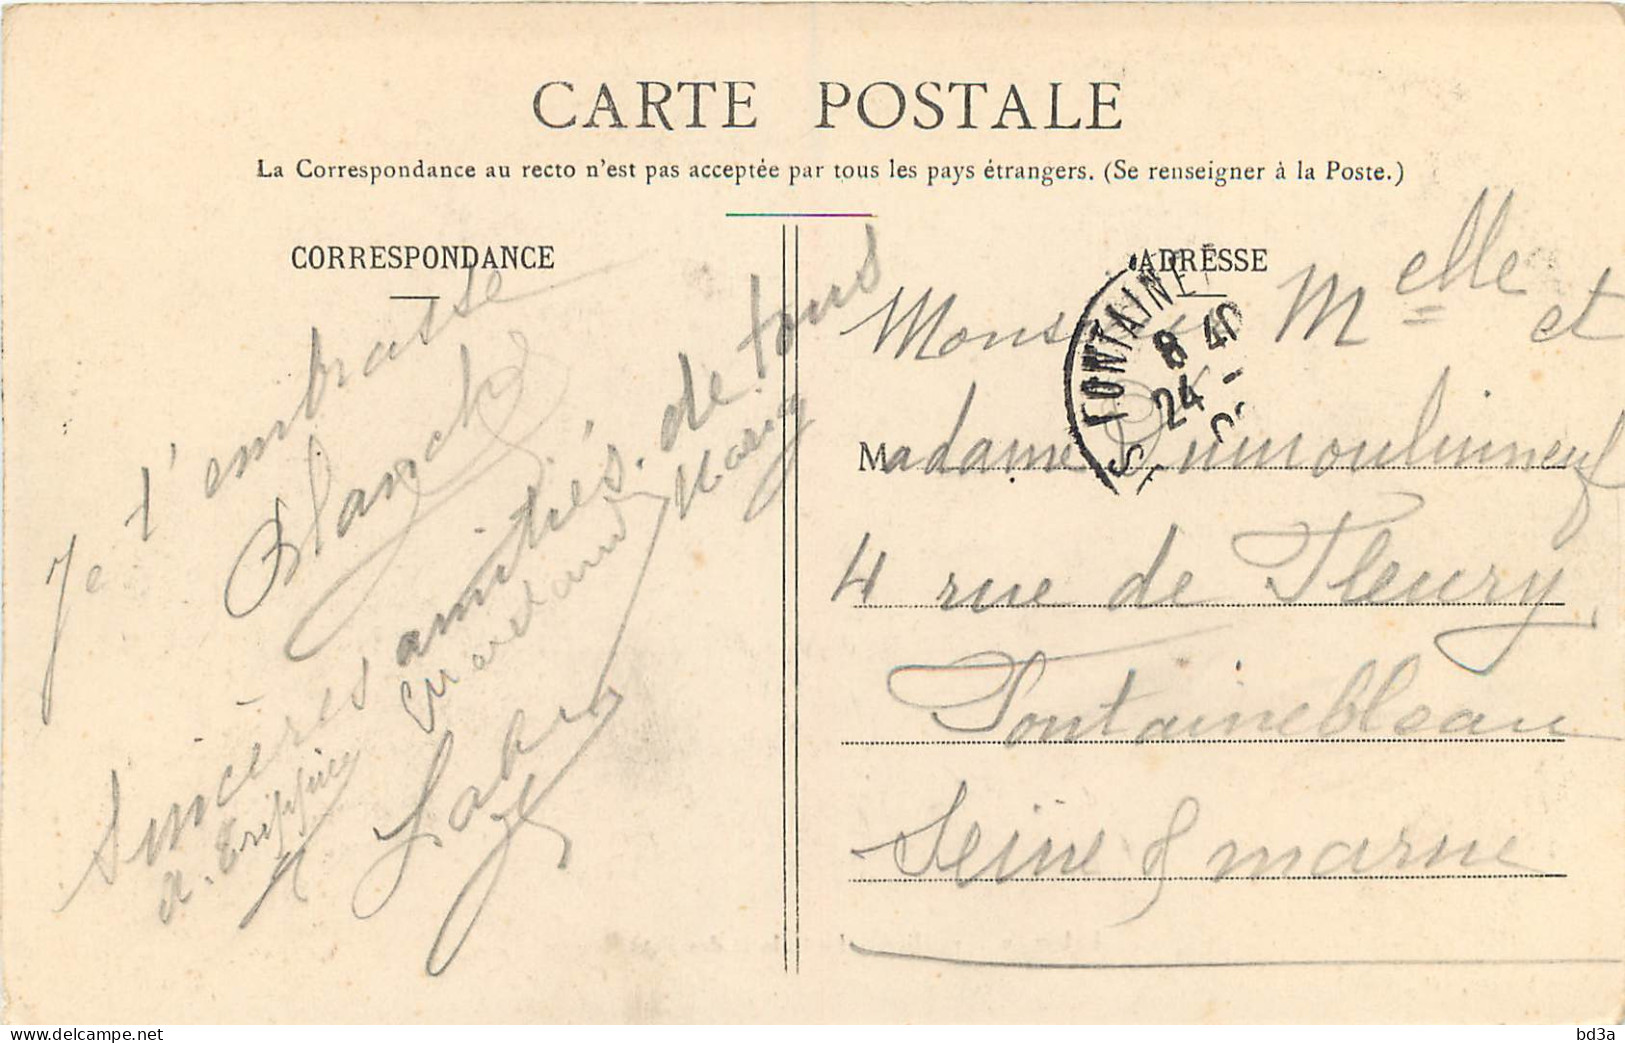 CARTE POSTALE
La Correspondance au recto n'est pas acceptée par tous les pays étrangers. (Se renseigner à la Poste.)
CORRESPONDANCE
Je t'embrasse
Blanche
Sincères amitiés. de tous
ADRESSE
Monsieur Melle et
Madame Dumoulinneuf
4 rue de Fleury
Fontainebleau
Seine & marne
FONTAINE
8 40
24
www.delcampe.net
bd3a